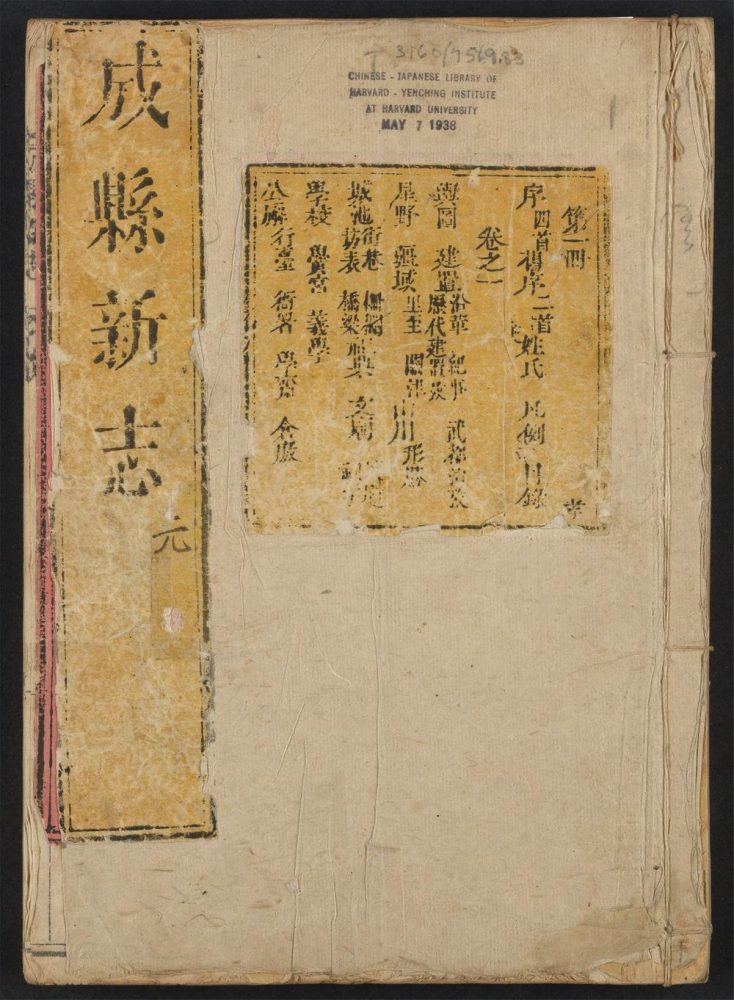 T 3160/7569.83
CHINESE - JAPANESE LIBRARY OF
HARVARD - YENCHING INSTITUTE
AT HARVARD UNIVERSITY
MAY 7 1938
第一冊
序四首舊序二首姓氏 凡例 目錄
卷之一
輿圖 建置沿革 紀事 歷代建置
星野 疆域里至 關津 山川 形勝
城池街巷坊表 橋梁 祀典 文廟
學校 黌宮 義學
公廨行臺 衙署 學齋 倉廒
成縣新志
元